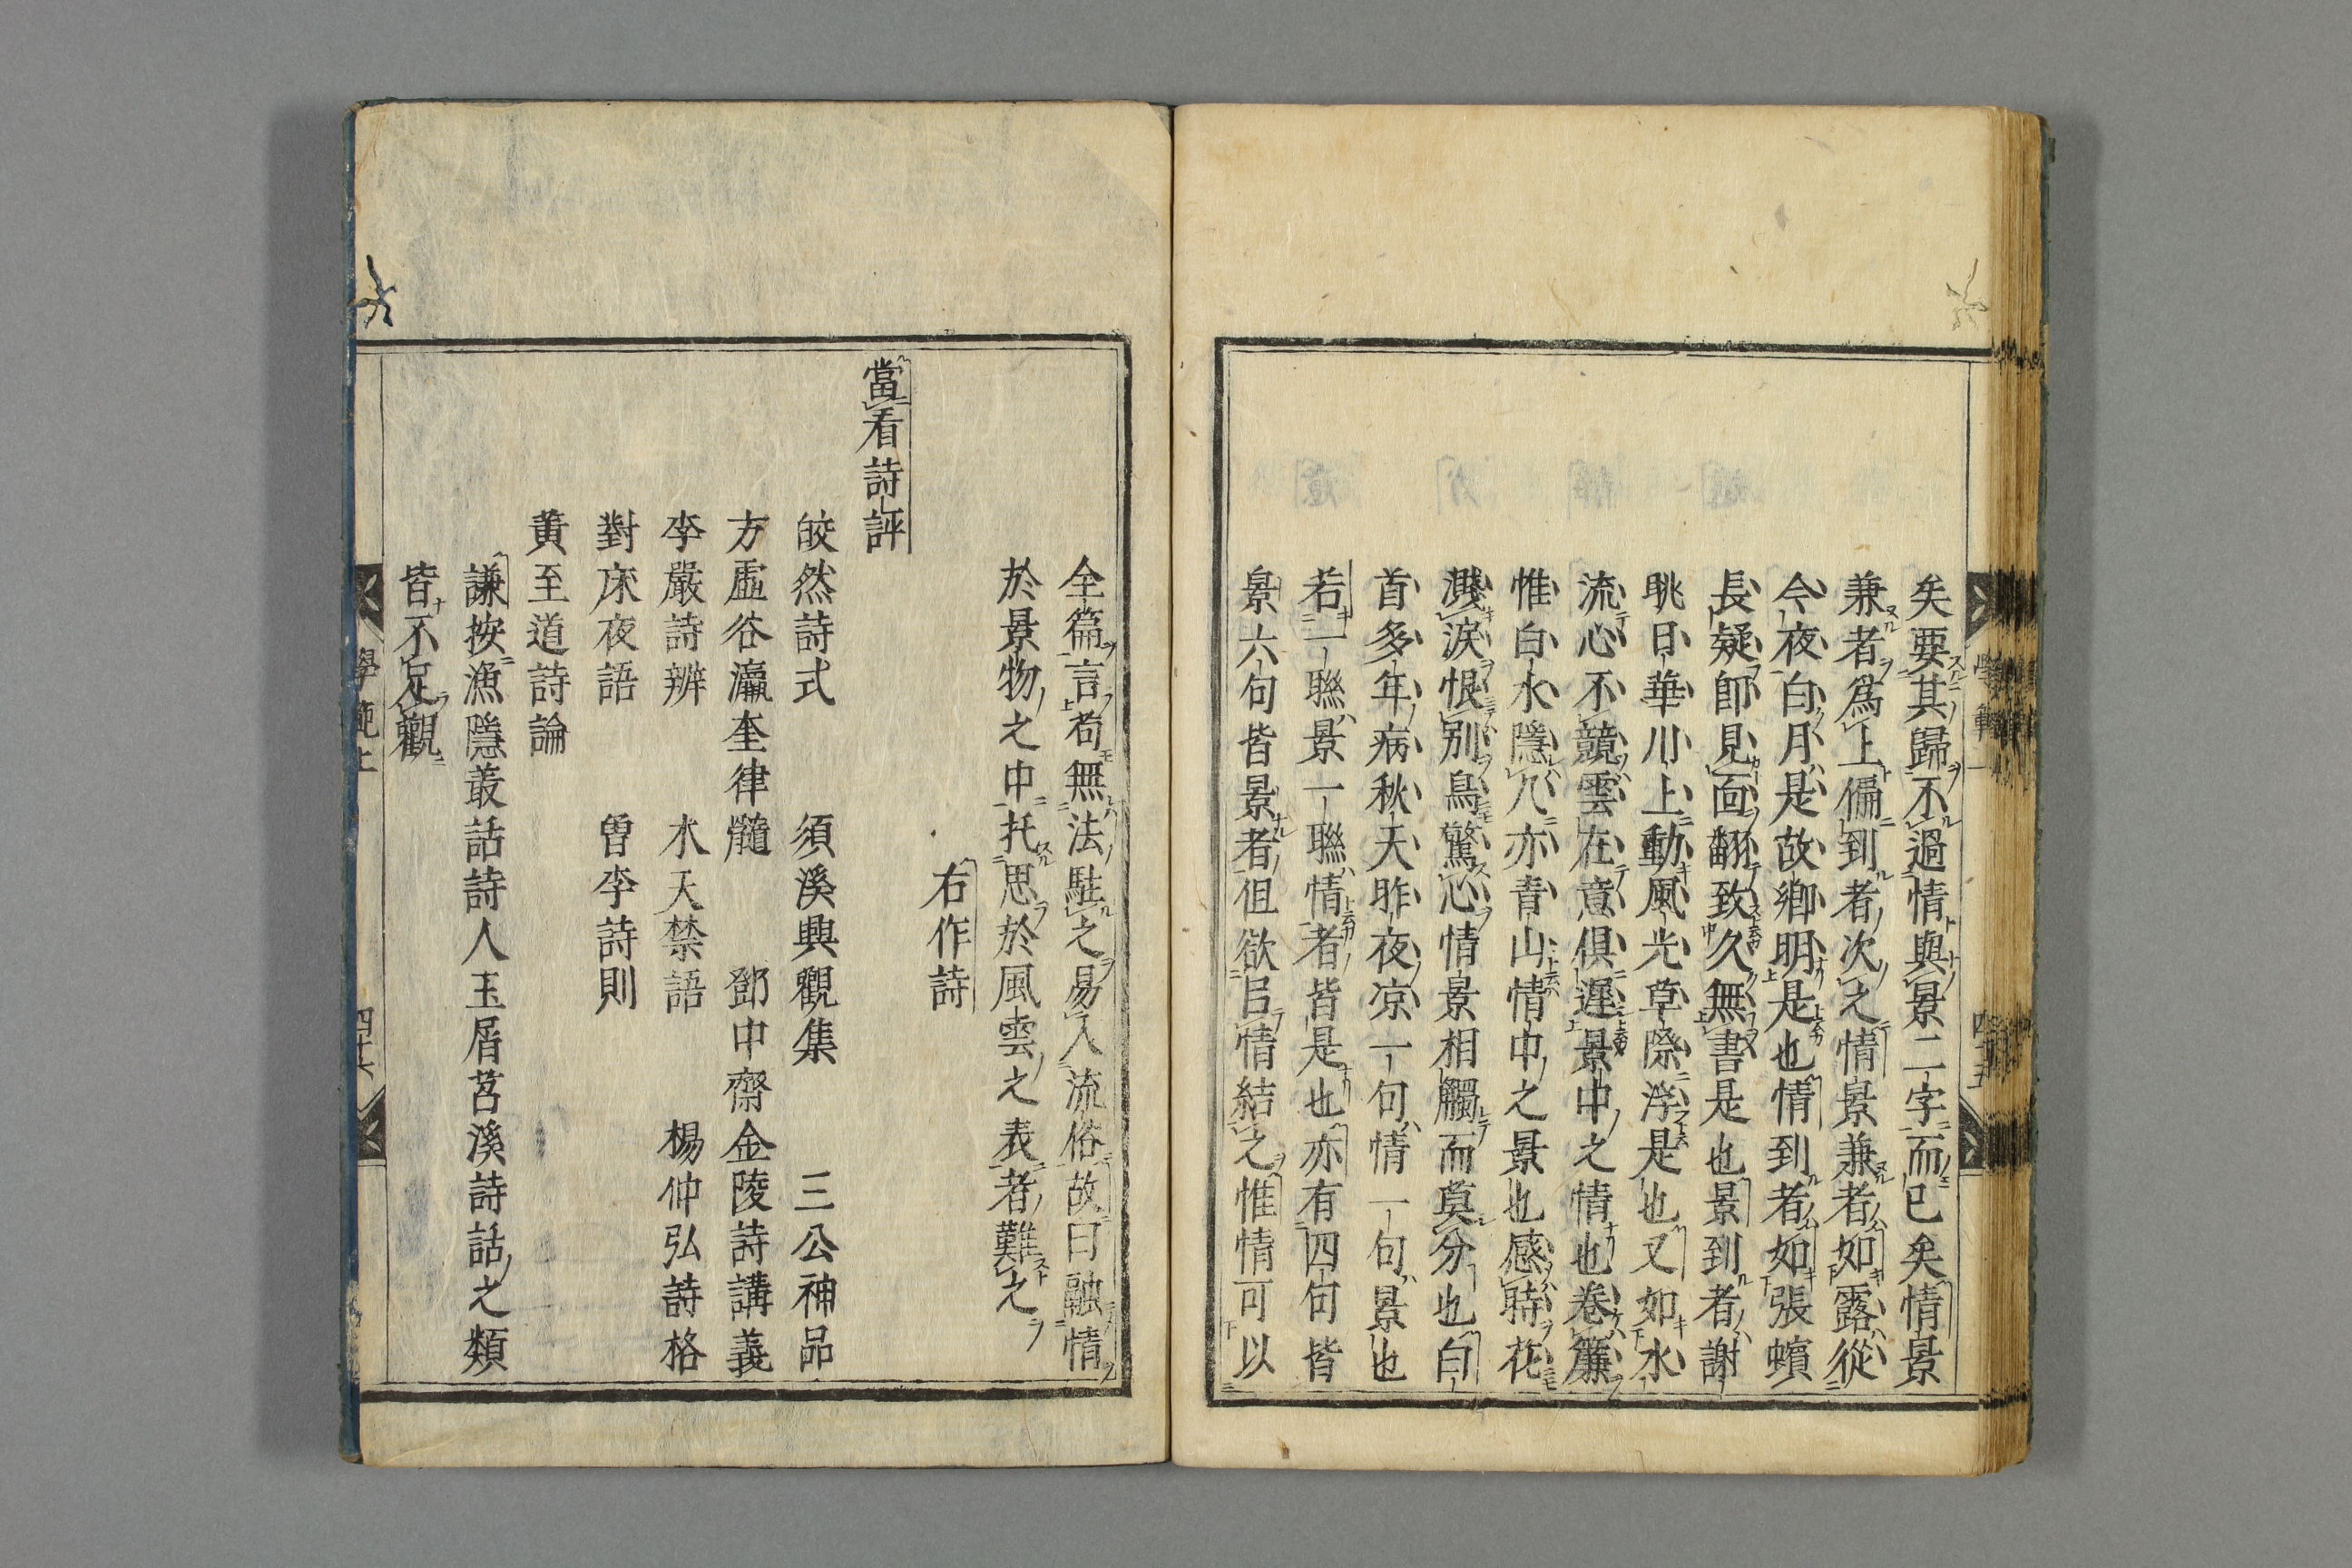 矣要其歸不過情與景二字而已矣情景
兼者爲上偏到者次之情景兼者如露從
今夜白月是故鄉明是也情到者如張蠙
長疑卽見面翻致久無書是也景到者謝
眺日華川上動風光草際浮是也又如水
流心不競雲在意俱遲景中之情也卷簾
惟白水隱几亦青山情中之景也感時花
濺淚恨别鳥驚心情景相觸而莫分也白
首多年病秋天昨夜凉一句情一句景也
若一聯景一聯情者皆是也亦有四句皆
景六句皆景者但欲㠯情結之惟情可以
全篇言苟無法駐之易入流俗故曰融情
於景物之中托思於風雲之表者難之
右作詩
當看詩評
皎然詩式 須溪興觀集 三公神品
方虛谷瀛奎律髓 鄧中齋金陵詩講義
李嚴詩辨 木天禁語 楊仲弘詩格
對床夜語 曾李詩則
黃至道詩論
謙按漁隱叢話詩人玉屑苕溪詩話之類
皆不足觀